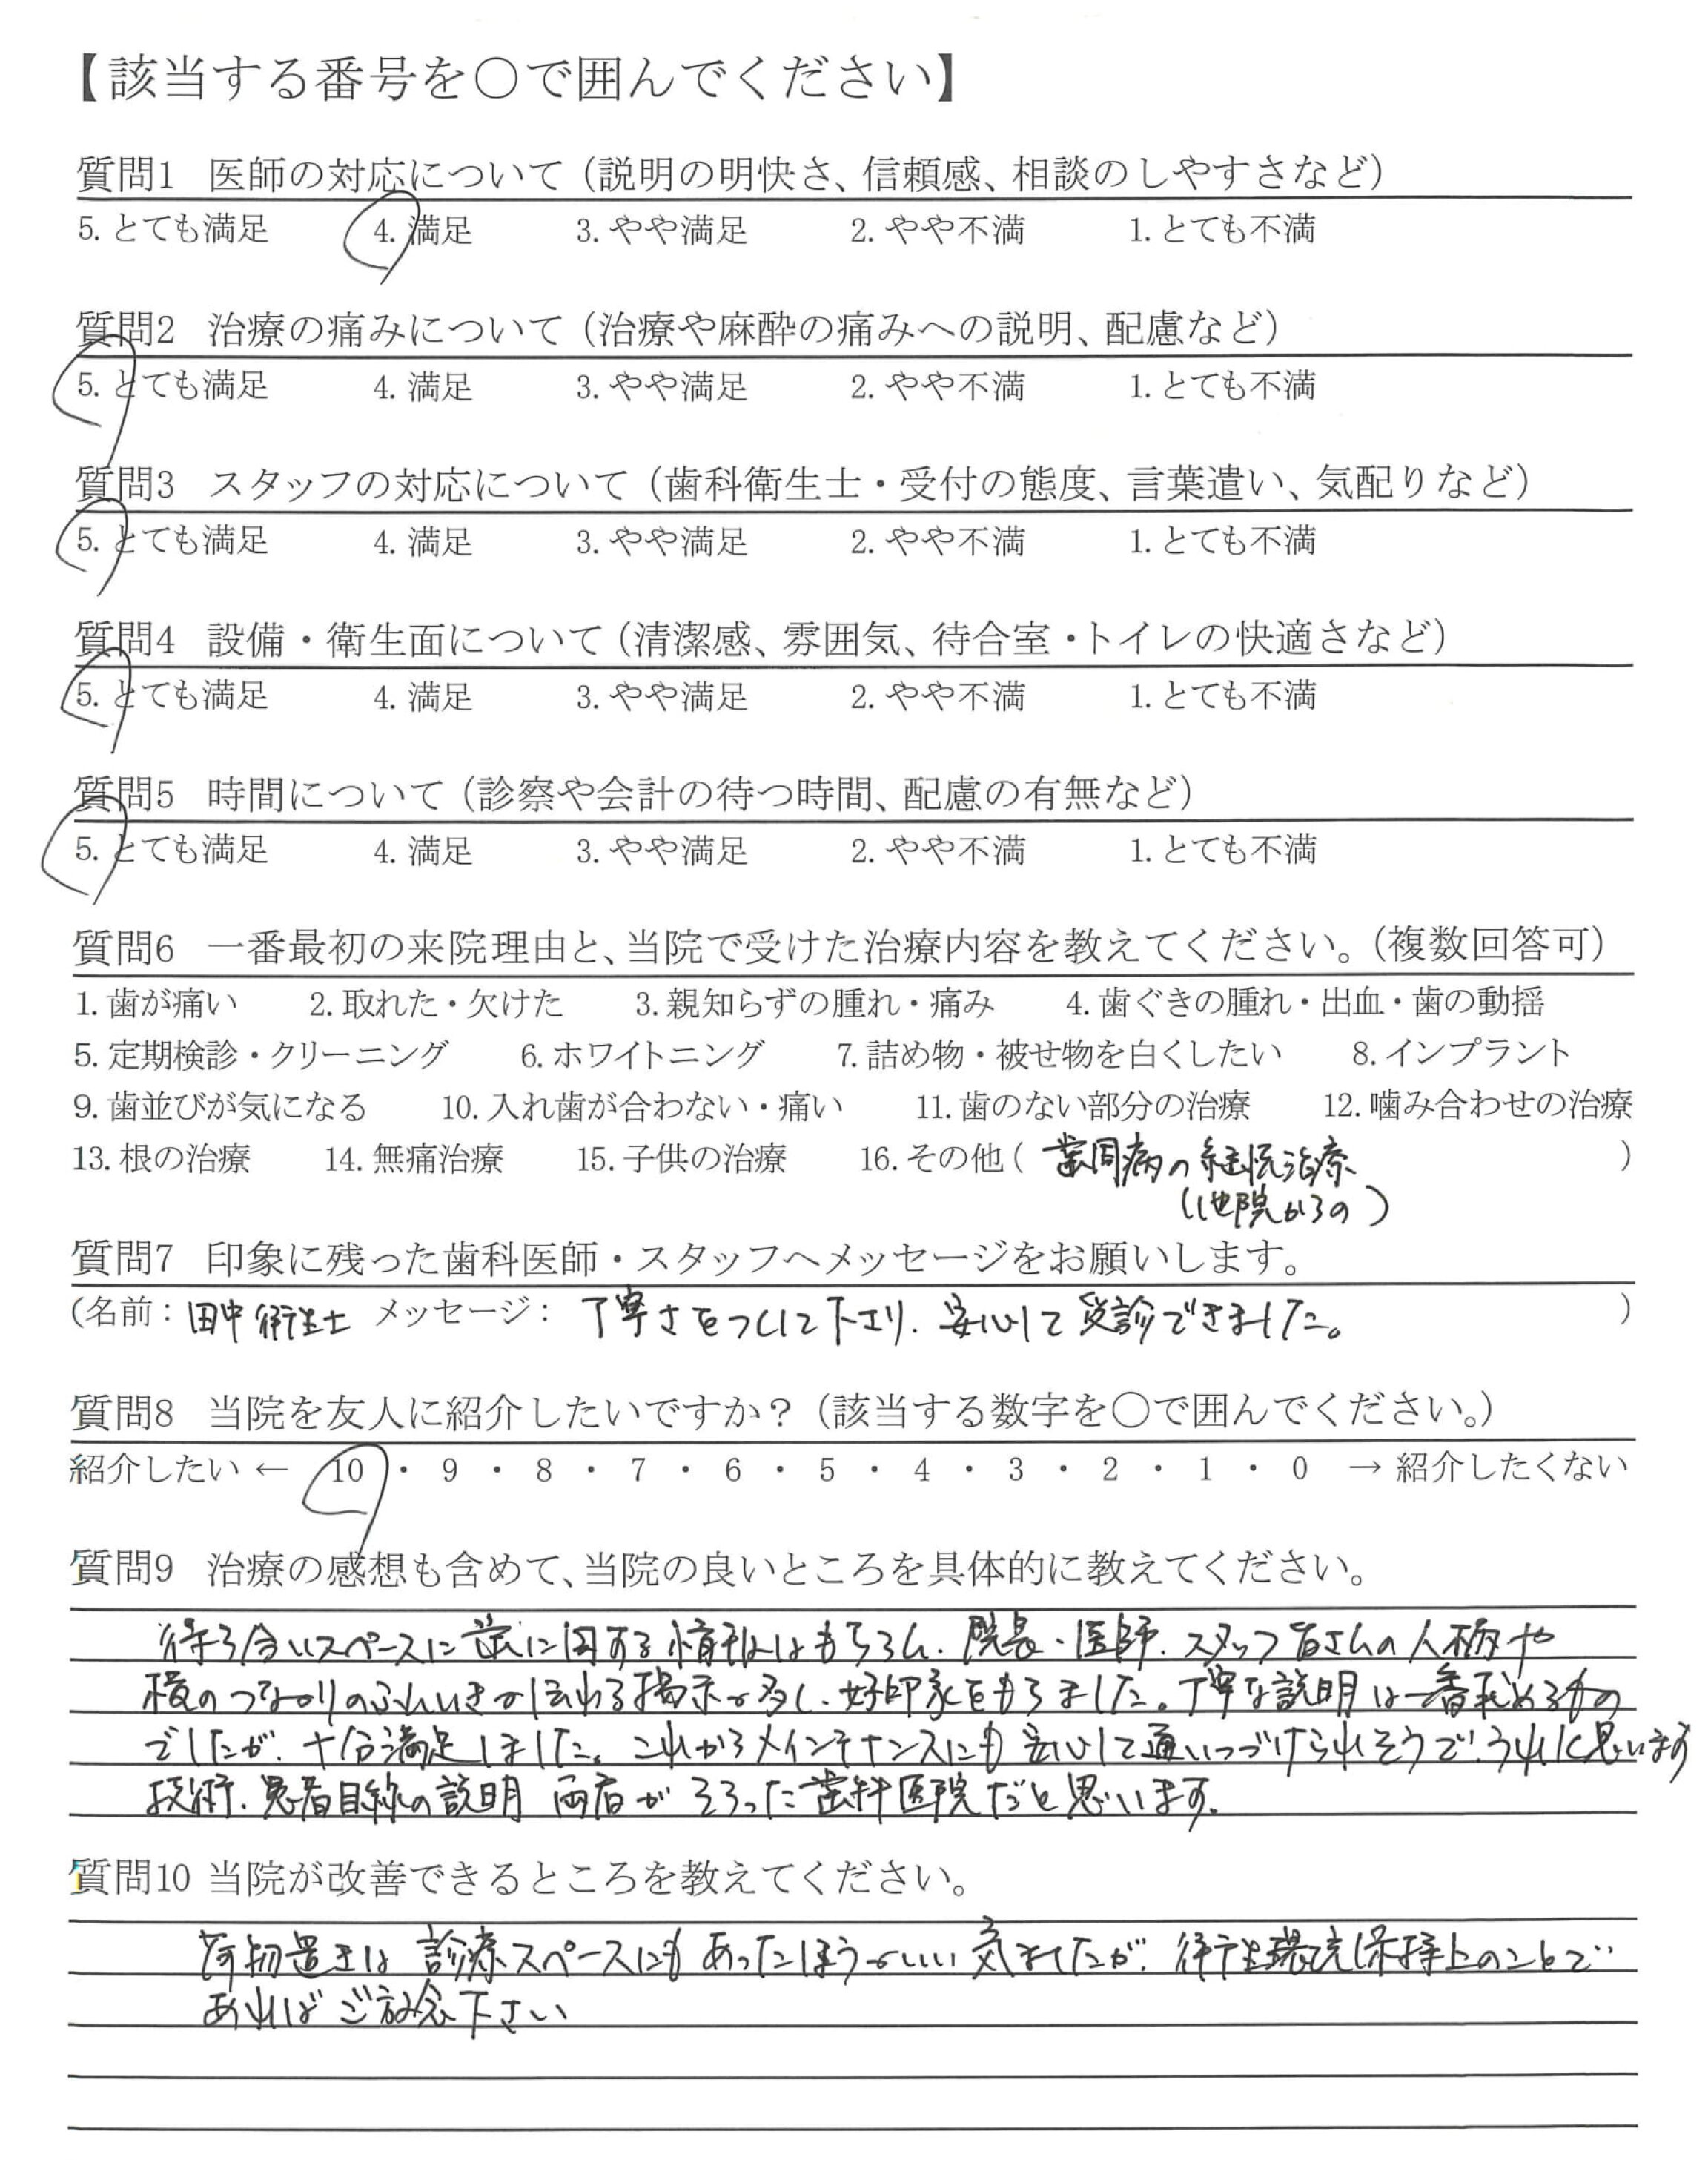 【該当する番号を○で囲んでください】
質問1 医師の対応について（説明の明快さ、信頼感、相談のしやすさなど）
5. とても満足 4. 満足 3. やや満足 2. やや不満 1. とても不満
質問2 治療の痛みについて（治療や麻酔の痛みへの説明、配慮など）
5. とても満足 4. 満足 3. やや満足 2. やや不満 1. とても不満
質問3 スタッフの対応について（歯科衛生士・受付の態度、言葉遣い、気配りなど）
5. とても満足 4. 満足 3. やや満足 2. やや不満 1. とても不満
質問4 設備・衛生面について（清潔感、雰囲気、待合室・トイレの快適さなど）
5. とても満足 4. 満足 3. やや満足 2. やや不満 1. とても不満
質問5 時間について（診察や会計の待つ時間、配慮の有無など）
5. とても満足 4. 満足 3. やや満足 2. やや不満 1. とても不満
質問6 一番最初の来院理由と、当院で受けた治療内容を教えてください。（複数回答可）
1. 歯が痛い 2. 取れた・欠けた 3. 親知らずの腫れ・痛み 4. 歯ぐきの腫れ・出血・歯の動揺
5. 定期検診・クリーニング 6. ホワイトニング 7. 詰め物・被せ物を白くしたい 8. インプラント
9. 歯並びが気になる 10. 入れ歯が合わない・痛い 11. 歯のない部分の治療 12. 噛み合わせの治療
13. 根の治療 14. 無痛治療 15. 子供の治療 16. その他（ 歯周病の継続治療 ）
（他院からの）
質問7 印象に残った歯科医師・スタッフへメッセージをお願いします。
（名前：田中衛生士 メッセージ： 丁寧さをつくして下さり、安心して受診できました。 ）
質問8 当院を友人に紹介したいですか？（該当する数字を○で囲んでください。）
紹介したい ← 10 ・ 9 ・ 8 ・ 7 ・ 6 ・ 5 ・ 4 ・ 3 ・ 2 ・ 1 ・ 0 → 紹介したくない
質問9 治療の感想も含めて、当院の良いところを具体的に教えてください。
待ち合いスペースに歯に関する情報はもちろん、院長・医師、スタッフ皆さんの人柄や
横のつながりのふんいきが伝わる掲示が多く、好印象をもちました。丁寧な説明は一番求めるもの
でしたが、十分満足しました。これからメインテナンスにも安心して通いつづけられそうで、うれしく思います
技術、患者目線の説明 両者がそろった歯科医院だと思います。
質問10 当院が改善できるところを教えてください。
荷物置きは診療スペースにもあったほうがいい気もしたが、衛生環境保持上のことで
あればご放念下さい